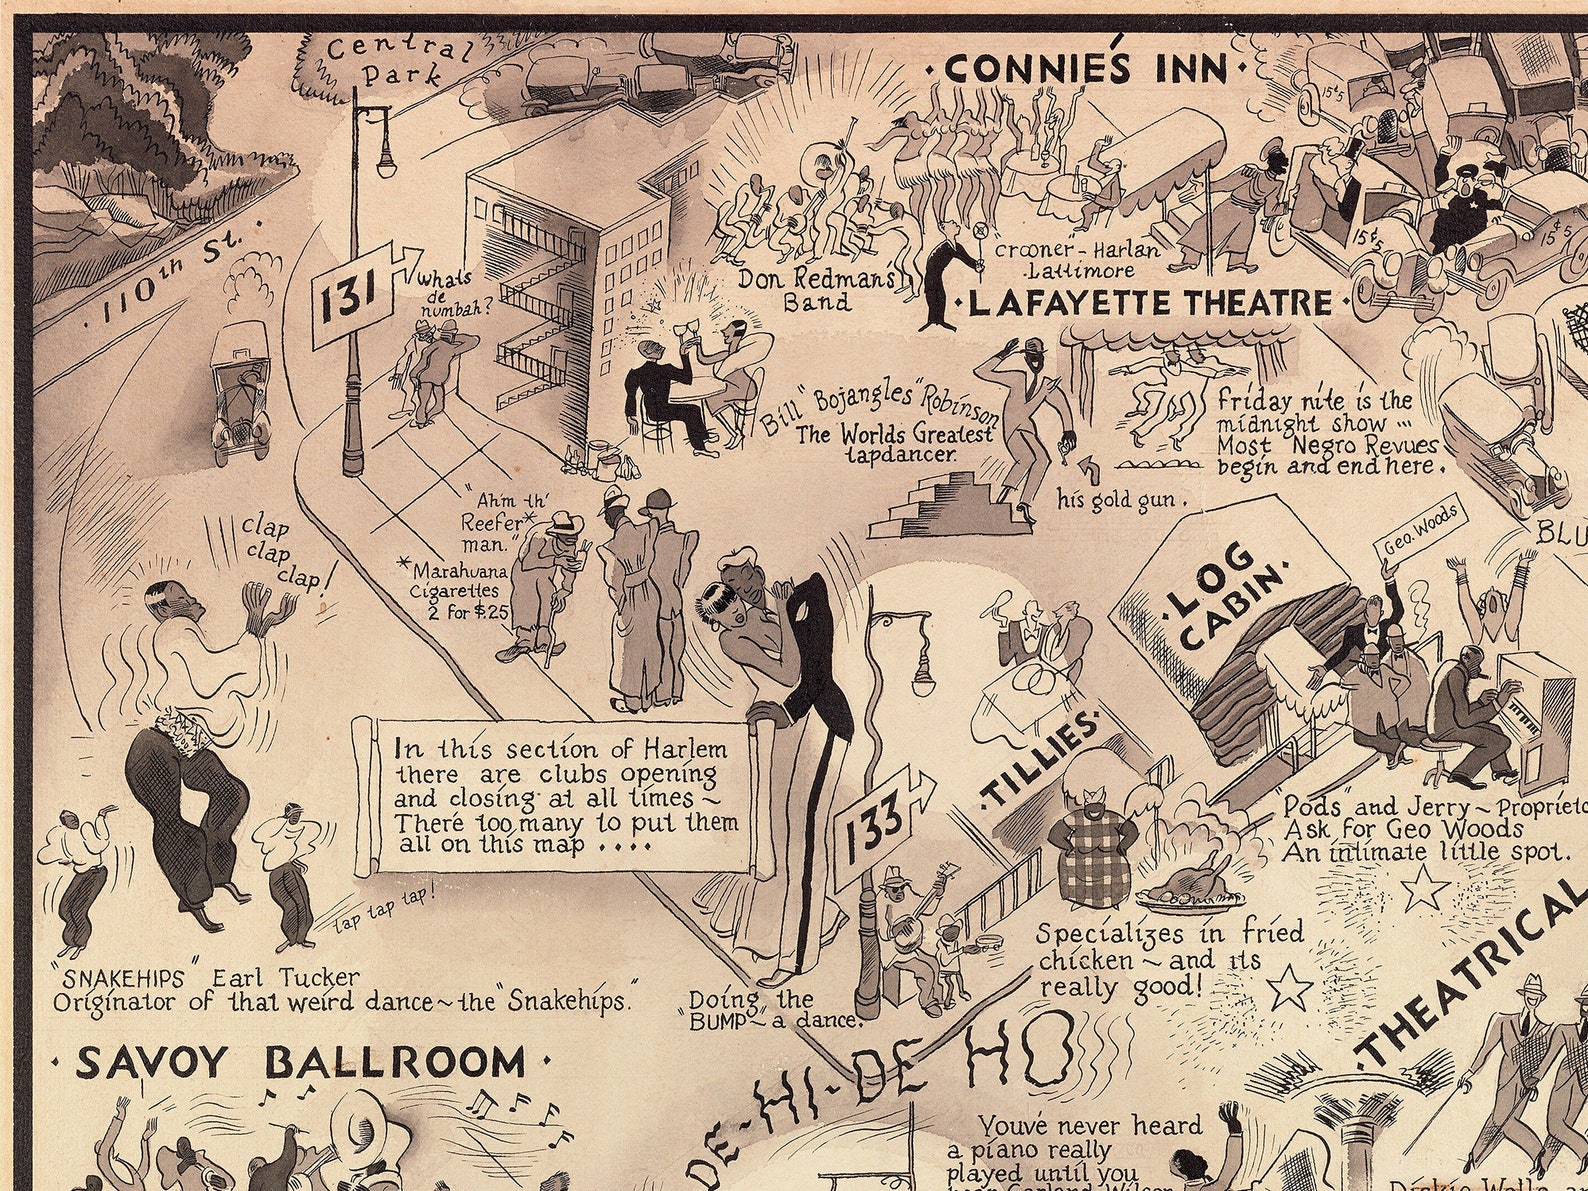 Central
Park
110th St.
131
whats
de
numbah?
CONNIE'S INN
15¢5
15¢5
15¢5
Don Redman's
Band
"crooner" - Harlan
Lattimore
LAFAYETTE THEATRE
Bill "Bojangles" Robinson
The Worlds Greatest
tapdancer.
his gold gun.
Friday nite is the
midnight show ...
Most Negro Revues
begin and end here.
"Ahm th'
Reefer*
man."
*Marahuana
Cigarettes
2 for $.25
clap
clap
clap!
In this section of Harlem
there are clubs opening
and closing at all times ~
There too many to put them
all on this map ....
tap tap tap!
"SNAKEHIPS" Earl Tucker
Originator of that weird dance ~ the "Snakehips."
"Doing the
"BUMP" ~ a dance.
133
TILLIES
Specializes in fried
chicken ~ and its
really good!
LOG
CABIN
Geo. Woods
BLU
"Pods" and Jerry ~ Propriet
Ask for Geo Woods
An intimate little spot.
THEATRICAL
SAVOY BALLROOM
DE-HI-DE HO
Youve never heard
a piano really
played until you
hear Garland Wilson
Dickie Wells an